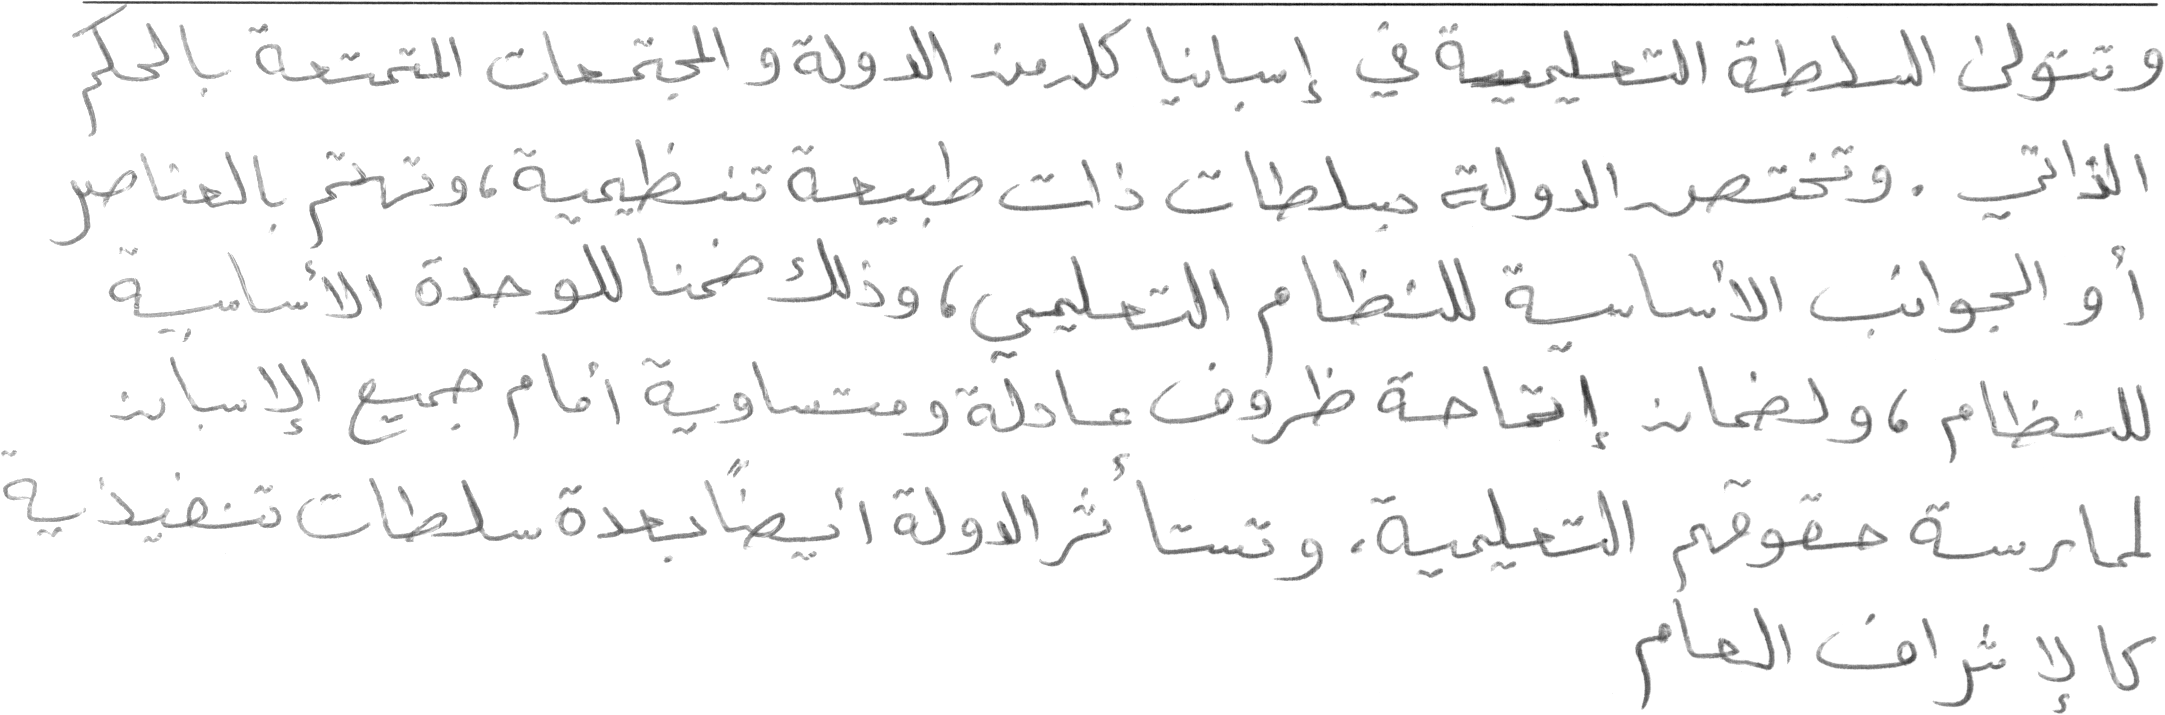 وتتولى السلطة التعليمية في إسبانيا كل من الدولة والمجتمعات المتمتعة بالحكم
الذاتي . وتختص الدولة بسلطات ذات طبيعة تنظيمية، وتهتم بالعناصر
أو الجوانب الأساسية للنظام التعليمي، وذلك ضمنا للوحدة الأساسية
للنظام، ولضمان إتماحة ظروف عادلة ومتساوية أمام جميع الإسبان
لممارسة حقوقهم التعليمية. وتستأثر الدولة أيضًا بعدة سلطات تنفيذية
كالإشراف العام